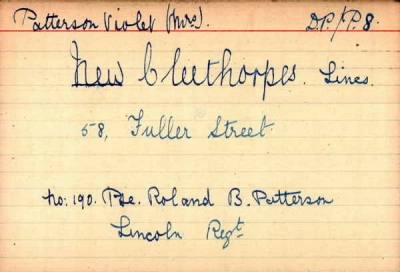 Patterson Violet (Mrs). D.P./P.8.
New Cleethorpes. Lincs.
58, Fuller Street
No: 190. Pte. Roland B. Patterson
Lincoln Regt